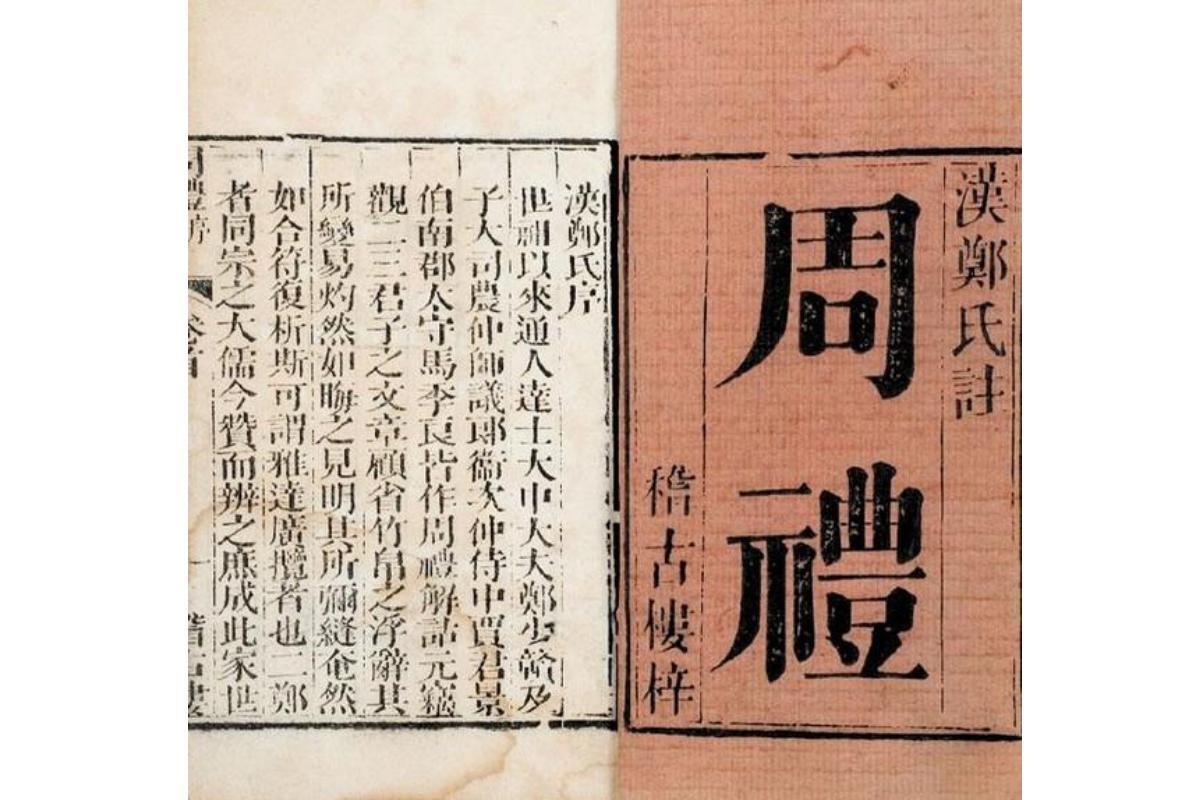 漢鄭氏註
周禮
稽古樓梓
漢鄭氏序
世祖以來通人達士大中大夫鄭少贛及
子大司農仲師議郎衞次仲侍中賈君景
伯南郡太守馬季長皆作周禮解詁元竊
觀二三君子之文章顧省竹帛之浮辭其
所變易灼然如晦之見明其所彌縫奄然
如合符復析斯可謂雅達廣攬者也二鄭
者同宗之大儒今贊而辨之庶成此家世
周禮序
卷首
一
稽古樓